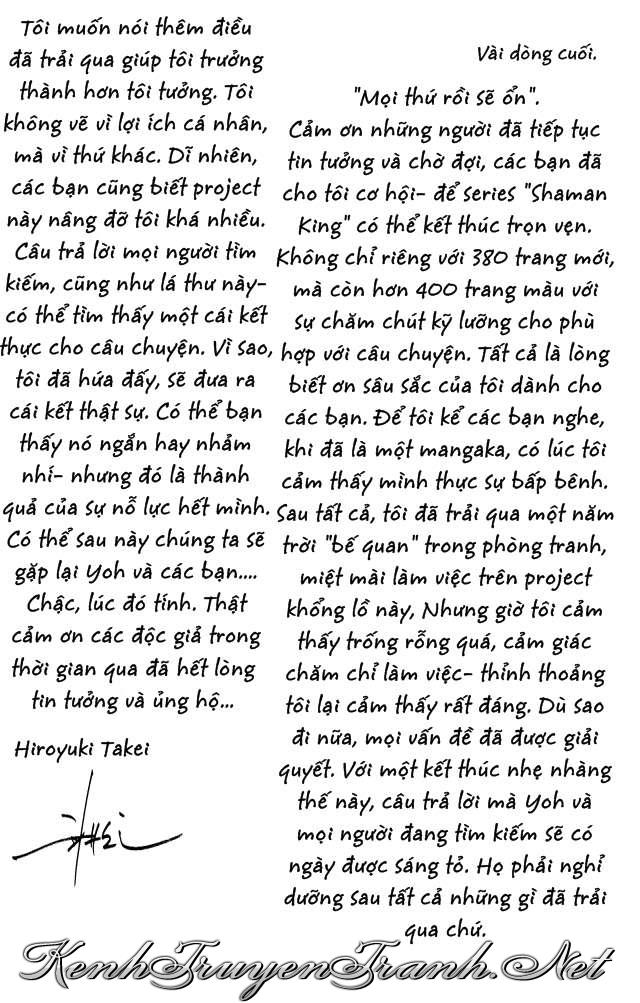 Vài dòng cuối.
"Mọi thứ rồi sẽ ổn".
Cảm ơn những người đã tiếp tục
tin tưởng và chờ đợi, các bạn đã
cho tôi cơ hội- để series "Shaman
King" có thể kết thúc trọn vẹn.
Không chỉ riêng với 380 trang mới,
mà còn hơn 400 trang màu với
sự chăm chút kỹ lưỡng cho phù
hợp với câu chuyện. Tất cả là lòng
biết ơn sâu sắc của tôi dành cho
các bạn. Để tôi kể các bạn nghe,
khi đã là một mangaka, có lúc tôi
cảm thấy mình thực sự bấp bênh.
Sau tất cả, tôi đã trải qua một năm
trời "bế quan" trong phòng tranh,
miệt mài làm việc trên project
khổng lồ này, Nhưng giờ tôi cảm
thấy trống rỗng quá, cảm giác
chăm chỉ làm việc- thỉnh thoảng
tôi lại cảm thấy rất đáng. Dù sao
đi nữa, mọi vấn đề đã được giải
quyết. Với một kết thúc nhẹ nhàng
thế này, câu trả lời mà Yoh và
mọi người đang tìm kiếm sẽ có
ngày được sáng tỏ. Họ phải nghỉ
dưỡng sau tất cả những gì đã trải
qua chứ.
Tôi muốn nói thêm điều
đã trải qua giúp tôi trưởng
thành hơn tôi tưởng. Tôi
không vẽ vì lợi ích cá nhân,
mà vì thứ khác. Dĩ nhiên,
các bạn cũng biết project
này nâng đỡ tôi khá nhiều.
Câu trả lời mọi người tìm
kiếm, cũng như lá thư này-
có thể tìm thấy một cái kết
thực cho câu chuyện. Vì sao,
tôi đã hứa đấy, sẽ đưa ra
cái kết thật sự. Có thể bạn
thấy nó ngắn hay nhảm
nhí- nhưng đó là thành
quả của sự nỗ lực hết mình.
Có thể sau này chúng ta sẽ
gặp lại Yoh và các bạn....
Chậc, lúc đó tính. Thật
cảm ơn các độc giả trong
thời gian qua đã hết lòng
tin tưởng và ủng hộ...
Hiroyuki Takei
KenhTruyenTranh.Net